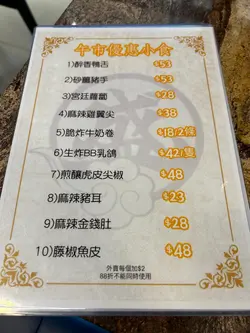 午市優惠小食
1)醉香鴨舌 $53
2)砂薑豬手 $53
3)宮廷蘿蔔 $28
4)麻辣雞翼尖 $38
5)脆炸牛奶卷 $18/2條
6)生炸BB乳鴿 $42/隻
7)煎釀虎皮尖椒 $48
8)麻辣豬耳 $23
9)麻辣金錢肚 $28
10)藤椒魚皮 $48
外賣每個加$2
88折不能同時使用